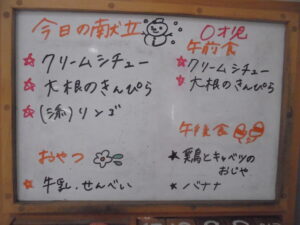 今日の献立
☆クリームシチュー
☆大根のきんぴら
☆(添)リンゴ
おやつ
★牛乳.せんべい
0才児
午前食
★クリームシチュー
★大根のきんぴら
午後食
★鶏とキャベツの
おじや
★バナナ